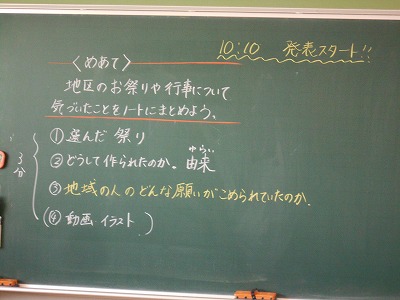 10:10 発表スタート!!
〈めあて〉
地区のお祭りや行事について
気づいたことをノートにまとめよう。
3分
①選んだ祭り
②どうして作られたのか。由来
ゆらい
③地域の人のどんな願いがこめられていたのか.
(④動画 イラスト)